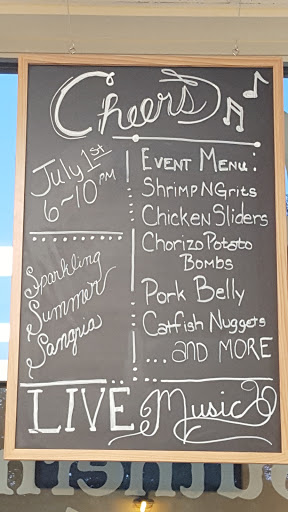 Cheers
July 1st
6~10 PM
Sparkling
Summer
Sangria
Event Menu:
Shrimp N Grits
Chicken Sliders
Chorizo Potato
Bombs
Pork Belly
Catfish Nuggets
... and MORE
LIVE Music